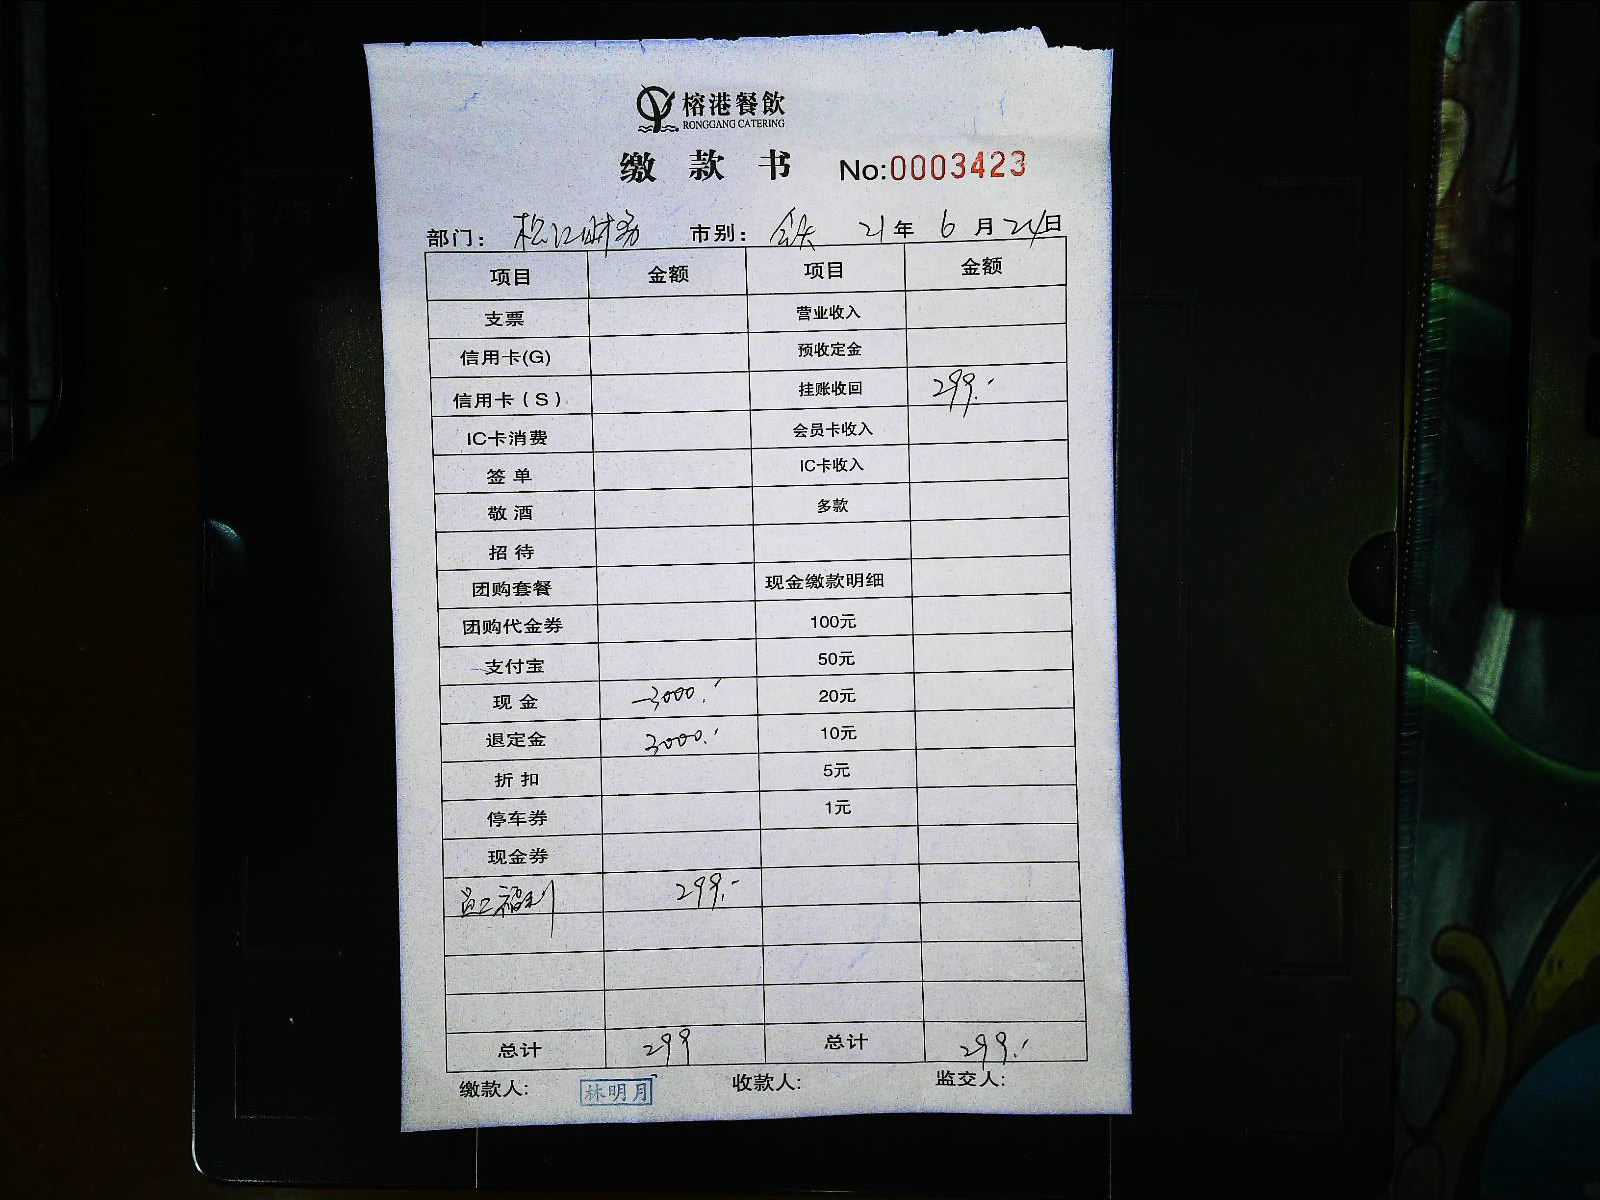 榕港餐飲
RONGGANG CATERING
缴款书 No:0003423
部门: 松江财务 市别: 全天 21年 6月 24日
项目 金额 项目 金额
支票 营业收入
信用卡(G) 预收定金
信用卡(S) 挂账收回 299.-
IC卡消费 会员卡收入
签单 IC卡收入
敬酒 多款
招待
团购套餐 现金缴款明细
团购代金券 100元
支付宝 50元
现金 -3000.- 20元
退定金 3000.- 10元
折扣 5元
停车券 1元
现金券
员工福利 299.-
总计 299 总计 299.-
缴款人: 林明月 收款人: 监交人: